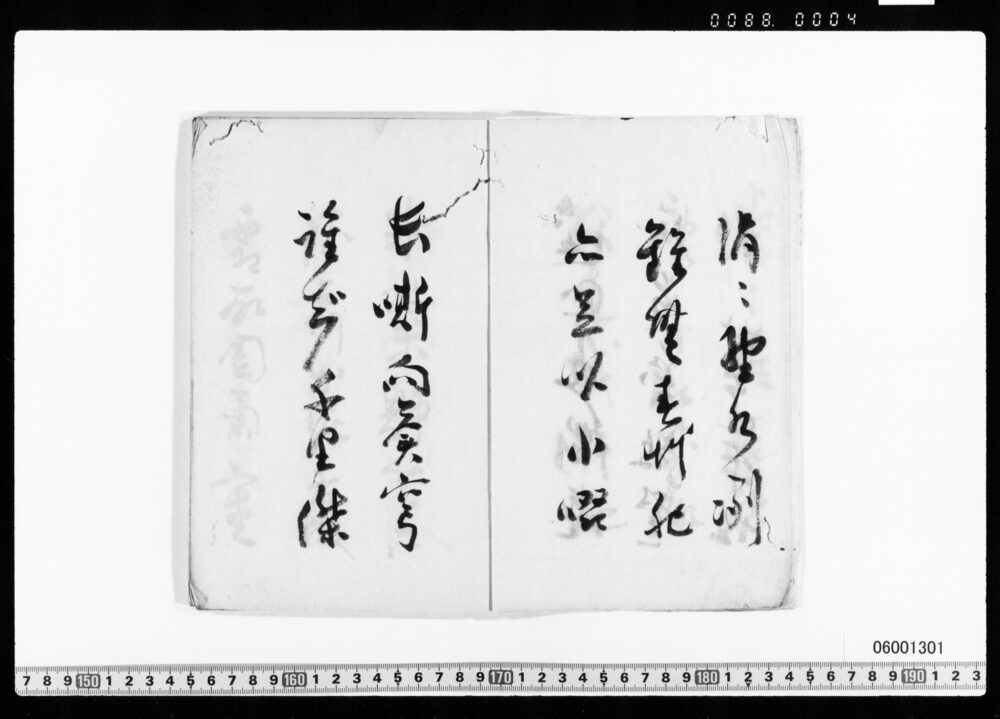 0088. 0004
涓〻水冽
雖無春艸肥
亦足以小啜
長嘶向穹
誰千里傑
06001301
7 8 9 150 1 2 3 4 5 6 7 8 9 160 1 2 3 4 5 6 7 8 9 170 1 2 3 4 5 6 7 8 9 180 1 2 3 4 5 6 7 8 9 190 1 2 3